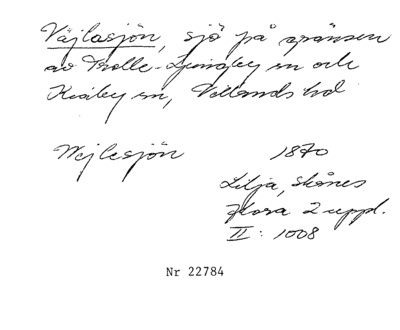 Väjlasjön, sjö på gränsen
av Trolle-Ljungby sn och
Kiaby sn, Villands hd
Wejlesjön 1870
Lilja, Skånes
flora 2 uppl.
II: 1008
Nr 22784